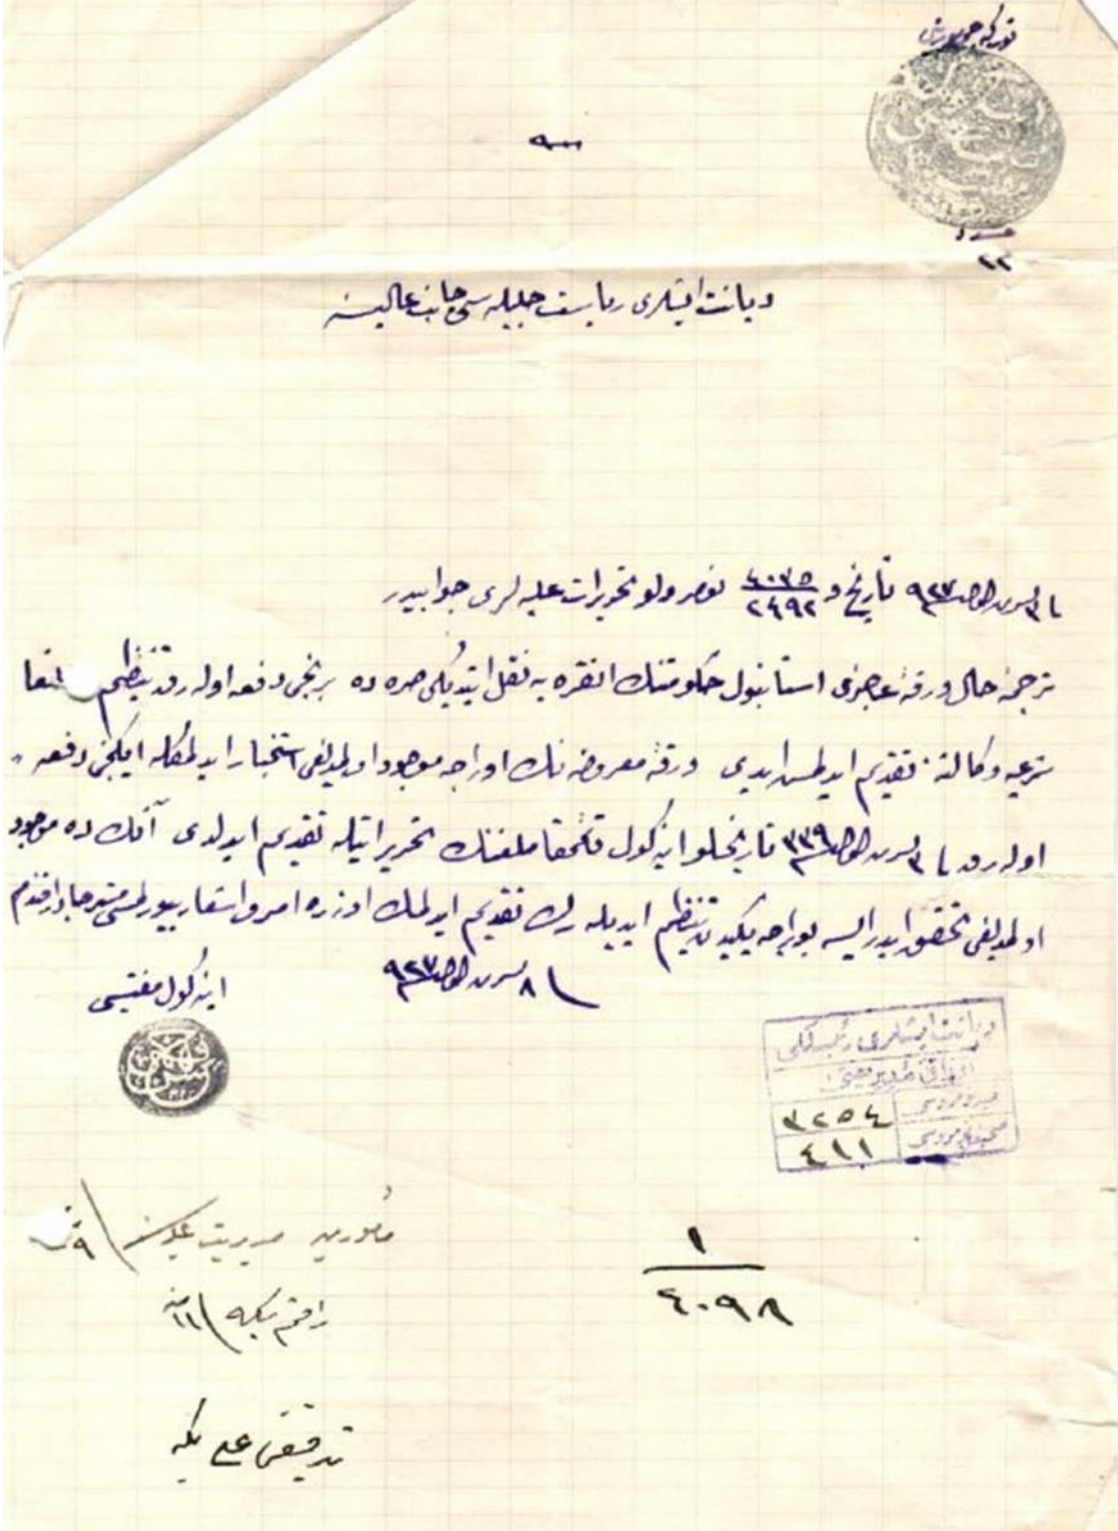 تورکیه جمهوریتی
عدد
٢٢
دیانت ایشلری ریاست جلیله‌سی جانب عالیسنه
تشرین الاول ٩٢٧ تاریخ و ٤٠٣٥/٢٤٩٢ نومرولو تحریرات علیه‌لری جوابیدر
ترجمهٔ حال ورقهٔ عاجزی استانبول حکومتنك انقره‌یه نقل ایتدیکی صره‌ده برنجی دفعه اوله‌رق تنظیم
شرعیه وکالتنه تقدیم ایدلمش ایدی ورقهٔ معروضه‌نك اوراجه موجود اولمدیغی استخبار ایدلمکله ایکنجی دفعه
اوله‌رق ٣ تشرین الاول ٣٣٩ تاریخلو اینه‌کول قائممقاملغنك تحریراتیله تقدیم ایدلدی آنك ده موجود
اولمدیغی تحقق ایدر ایسه بوراجه یکیدن تنظیم ایدیله‌رك تقدیم ایدلمك اوزره امر و اشعار بیورلمسی مسترحمدر افندم
٨ تشرین الاول ٩٢٧
اینه‌کول مفتیسی
دیانت ایشلری رئیسلکی
اوراق مدیریتی
٣٢٥٤
٤١١
مأمورین مدیریت علیه‌سنه ٩
راقم بکه ١١
١
٤٠٩٨
تدقیق علی بکه